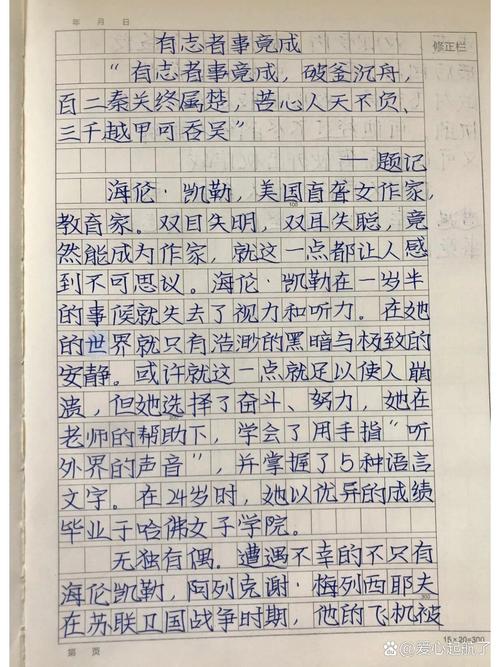 年 月 日
修正栏
有志者事竟成
“有志者事竟成，破釜沉舟，
百二秦关终属楚，苦心人天不负、
三千越甲可吞吴”
——题记
海伦·凯勒，美国盲聋女作家，
100
教育家。双目失明，双耳失聪，竟
然能成为作家，就这一点都让人感
到不可思议。海伦·凯勒在一岁半
的事候就失去了视力和听力。在她
的世界就只有浩渺的黑暗与极致的
安静。或许就这一点就足以使人崩
溃，但她选择了奋斗、努力，她在
老师的帮助下，学会了用手指“听
外界的声音”，并掌握了5种语言
文字。在24岁时，她以优异的成绩
毕业于哈佛女子学院。
无独有偶。遭遇不幸的不只有
海伦凯勒，阿列克谢·梅列西耶夫
300
在苏联卫国战争时期，他的飞机被
15×20=300
第 页
爱心起航了